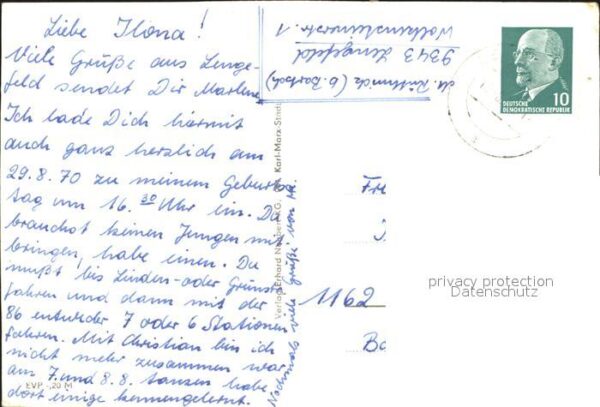 Liebe Ilona!
Viele Grüße aus Lenge-
feld sendet Dir Marlene
Ich lade Dich hiermit
auch ganz herzlich am
29.8.70 zu meinem Geburts
tag um 16.30 Uhr ein. Du
brauchst keinen Jungen mit
bringen, habe einen. Du
mußt bis Linden- oder Grünst
fahren und dann mit der
86 entweder 7 oder 6 Stationen
fahren. Mit Christian bin ich
nicht mehr zusammen war
am 7. und 8.8. tanzen habe
dort einige kennengelernt.
Nochmals viele Grüße von M.
EVP -,20 M
Verlag Erhard Neubert KG, Karl-Marx-Stadt
(b. Bartsch)
9343 Lengefeld
Wolkensteinerstr. 1
DEUTSCHE
DEMOKRATISCHE REPUBLIK
10
Fr
1162
privacy protection
Datenschutz